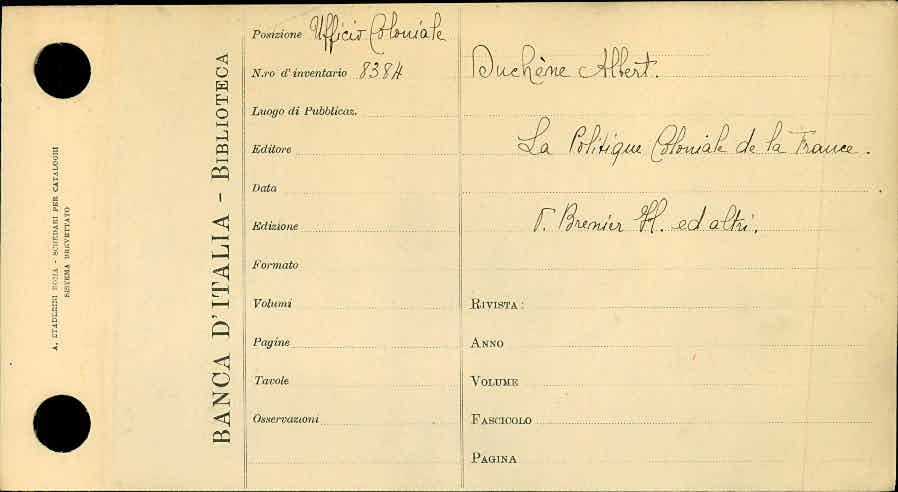 A. STADERINI ROMA - SCHEDARI PER CATALOGHI
SISTEMA BREVETTATO
BANCA D'ITALIA - BIBLIOTECA
Posizione Ufficio Coloniale
N.ro d'inventario 8384
Luogo di Pubblicaz.
Editore
Data
Edizione
Formato
Volumi
Pagine
Tavole
Osservazioni
Duchène Albert.
La Politique Coloniale de la France.
V. Brenier H. ed altri.
RIVISTA:
ANNO
VOLUME
FASCICOLO
PAGINA